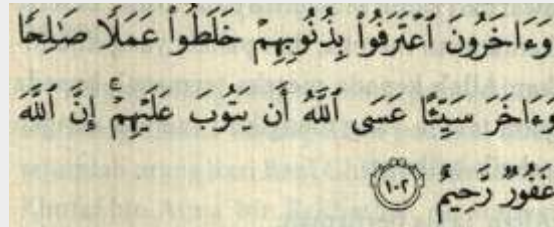 وَءَاخَرُونَ ٱعْتَرَفُوا۟ بِذُنُوبِهِمْ خَلَطُوا۟ عَمَلًا صَـٰلِحًا
وَءَاخَرَ سَيِّئًا عَسَى ٱللَّهُ أَن يَتُوبَ عَلَيْهِمْ ۚ إِنَّ ٱللَّهَ
غَفُورٌ رَّحِيمٌ ١٠٢